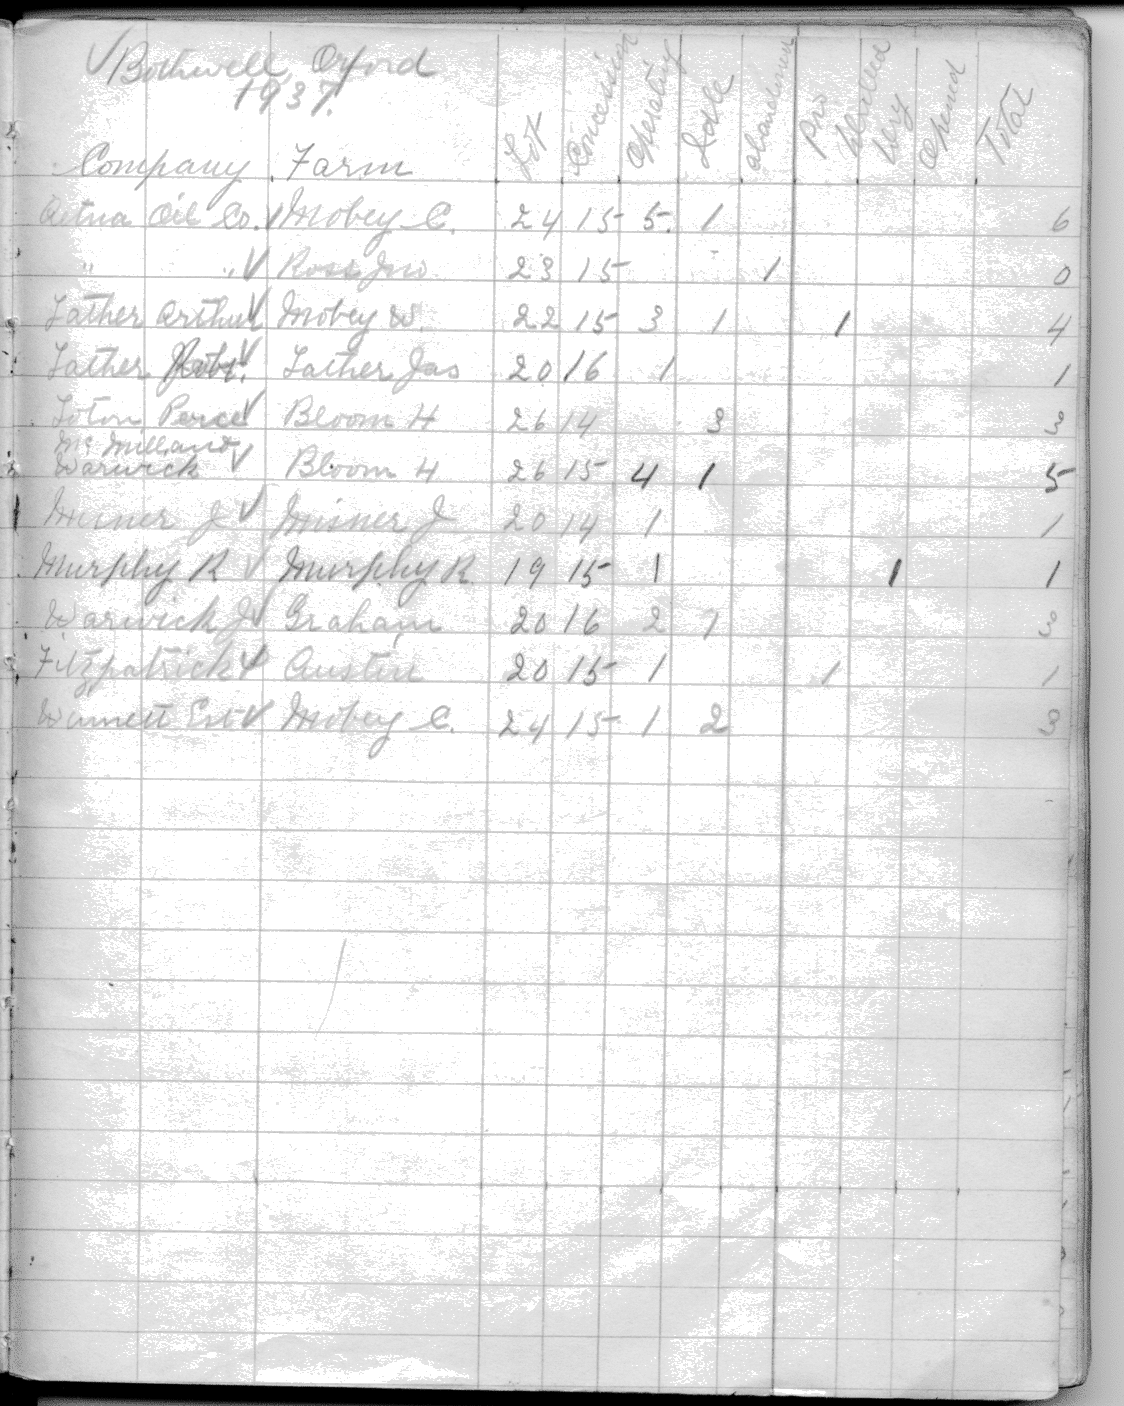 ✓ Bothwell, Orford
1937.
Company Farm Lot Concession Operating Idle abandoned Pro Drilled Dry Opened Total
Aetna Oil Co. ✓ Mobey C. 24 15 5 1 6
" " ✓ Ross Jno 23 15 1 0
Lather Arthur ✓ Mobey W. 22 15 3 1 1 4
Lather Robt. ✓ Lather Jas 20 16 1 1
Loton Perce ✓ Bloom H 26 14 3 3
Mc Milland
Warwick ✓ Bloom H 26 15 4 1 5
Misner J ✓ Misner J 20 14 1 1
Murphy R ✓ Murphy R 19 15 1 1 1
Warwick J ✓ Graham 20 16 2 1 3
Fitzpatrick ✓ Austin 20 15 1 1 1
Winnett Est ✓ Mobey C. 24 15 1 2 3